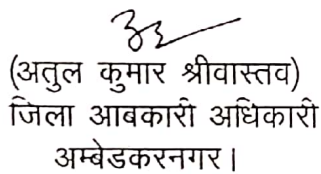 (अतुल कुमार श्रीवास्तव)
जिला आबकारी अधिकारी
अम्बेडकरनगर।